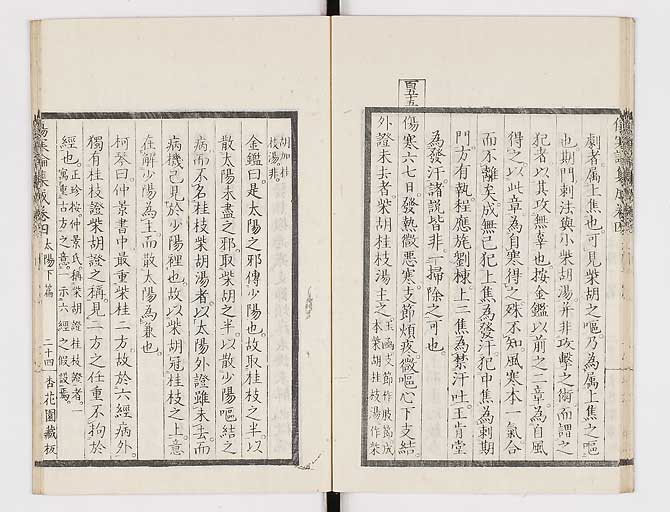 劇者屬上焦也可見柴胡之嘔乃為屬上焦之嘔
也期門刺法與小柴胡湯并非攻擊之術而謂之
犯者以其攻無辜也按金鑑以前之二章為自風
得之以此章為自寒得之殊不知風寒本一氣合
而不離矣成無己犯上焦為發汗犯中焦為刺期
門方有執程應旄劉棟上二焦為禁汗吐王肯堂
為發汗諸說皆非一掃除之可也
百五十五
傷寒六七日發熱微惡寒支節煩疼微嘔心下支結
外證未去者柴胡桂枝湯主之 玉函支節作肢節成
本柴胡桂枝湯作柴
胡加桂
枝湯非
金鑑曰是太陽之邪傳少陽也故取桂枝之半以
散太陽未盡之邪取柴胡之半以散少陽嘔結之
病而不名桂枝柴胡湯者以太陽外證雖未去而
病機已見於少陽裡也故以柴胡冠桂枝之上意
在解少陽為主而散太陽為兼也
柯琴曰仲景書中最重柴桂二方故於六經病外
獨有桂枝證柴胡證之稱見二方之任重不拘於
經也 正珍按仲景氏稱柴胡證桂枝證者一
寓重古方之意一示六經之假設焉
傷寒論集成卷四 太陽下篇 二十四 杏花園藏板